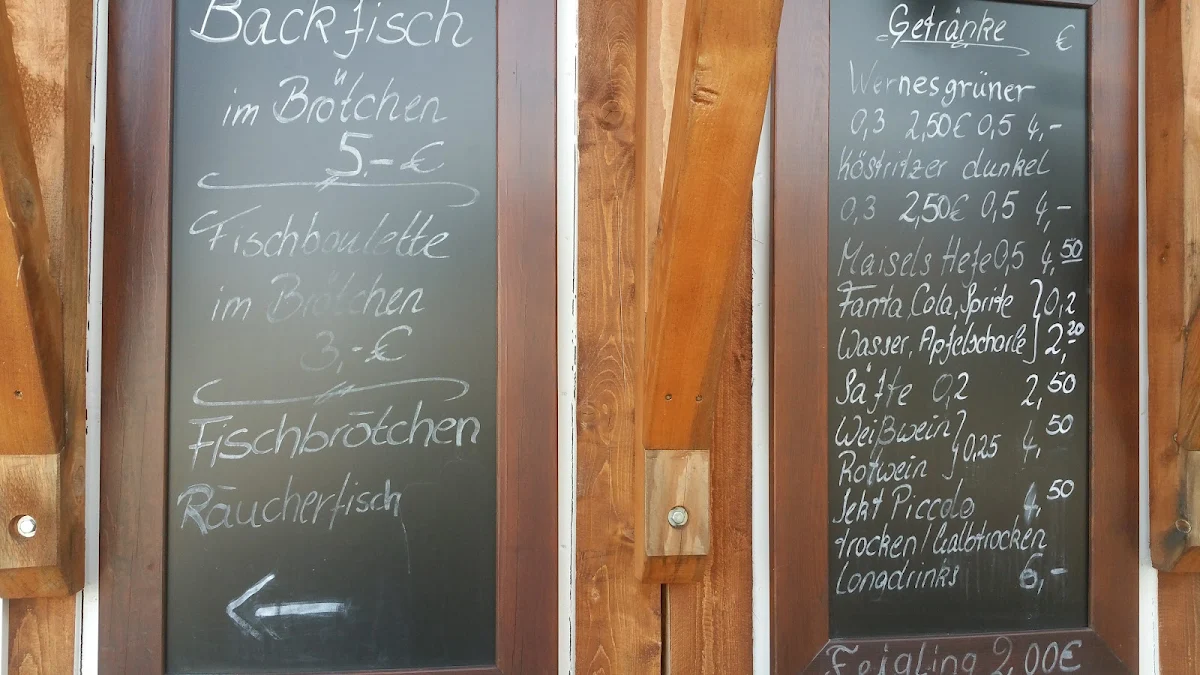 Backfisch
im Brötchen
5,- €
Fischboulette
im Brötchen
3,- €
Fischbrötchen
Räucherfisch
Getränke €
Wernesgrüner
0,3 2,50€ 0,5 4,-
Köstritzer dunkel
0,3 2,50€ 0,5 4,-
Maisels Hefe 0,5 4,50
Fanta, Cola, Sprite } 0,2
Wasser, Apfelschorle } 2,20
Säfte 0,2 2,50
Weißwein } 0,25 4,50
Rotwein
Sekt Piccolo 4,50
trocken/halbtrocken
Longdrinks 6,-
Feigling 2,00€